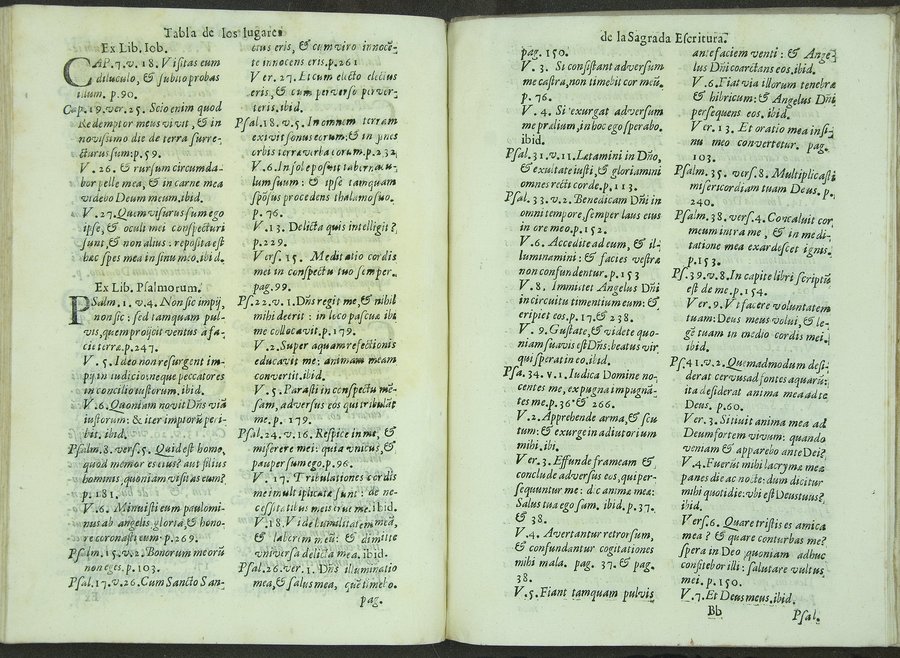 Tabla de los lugares
Ex Lib. Iob.
CAP. 7. v. 18. Visitas eum
diluculo, & subito probas
illum. p.90.
Cap.19.ver.25. Scio enim quod
Redemptor meus vivit, & in
novissimo die de terra surre-
cturus sum: p.59.
V. 26. & rursum circumda-
bor pelle mea, & in carne mea
videbo Deum meum. ibid.
V. 27. Quem visurus sum ego
ipse, & oculi mei conspecturi
sunt, & non alius: reposita est
hæc spes mea in sinu meo. ibid.
Ex Lib. Psalmorum.
Psalm. 1. v.4. Non sic impij,
non sic: sed tamquam pul-
vis, quem projicit ventus à fa-
cie terræ. p.247.
V. 5. Ideo non resurgent im-
pij in iudicio: neque peccatores
in concilio iustorum. ibid.
V. 6. Quoniam novit Dñs viã
iustorum: & iter impiorũ peri-
bit. ibid.
Psalm. 8. vers.5. Quid est homo,
quod memor es eius? aut filius
hominis, quoniam visitas eum?
p. 181.
V. 6. Minuisti eum paulomi-
nus ab angelis gloria, & hono-
re coronasti eum: p.269.
Psalm. 15. v.2. Bonorum meorũ
non eges. p.103.
Psal. 17. v.26. Cum Sancto San-
ctus eris, & cum viro innocẽ-
te innocens eris. p.261
Ver. 27. Et cum electo electus
eris, & cum perverso perver-
teris. ibid.
Psal. 18. v.5. In omnem terram
exivit sonus eorum: & in fines
orbis terræ verba eorum. p.232
V. 6. In sole posuit tabernacu-
lum suum: & ipse tamquam
spõsus procedens thalamo suo.
p. 76.
V. 13. Delicta quis intelligit?
p.229.
Vers. 15. Meditatio cordis
mei in conspectu tuo semper.
pag.99.
Ps. 22. v. 1. Dñs regit me, & nihil
mihi deerit: in loco pascuæ ibi
me collocavit. p.179.
V. 2. Super aquam refectionis
educavit me: animam meam
convertit. ibid.
V. 5. Parasti in conspectu mẽ-
sam, adversus eos qui tribulãt
me. p. 179.
Psal. 24. v.16. Respice in me, &
miserere mei: quia unicus, &
pauper sum ego. p.96.
V. 17. Tribulationes cordis
mei multiplicatæ sunt: de ne-
cessitatibus meis erue me. ibid.
V. 18. Vide humilitatem meã,
& laborem meũ: & dimitte
universa delicta mea. ibid.
Psal. 26. ver. 1. Dñs illuminatio
mea, & salus mea, quẽ timebo.
pag.
de la Sagrada Escritura.
pag. 150.
V. 3. Si consistant adversum
me castra, non timebit cor meũ.
p. 76.
V. 4. Si exurgat adversum
me prælium, in hoc ego sperabo.
ibid.
Psal. 31. v.11. Lætamini in Dño,
& exultate iusti, & gloriamini
omnes recti corde. p.113.
Psal. 33. v.2. Benedicam Dñi in
omni tempore, semper laus eius
in ore meo. p.152.
V. 6. Accedite ad eum, & il-
luminamini: & facies vestræ
non confundentur. p.153
V. 8. Immittet Angelus Dñi
in circuitu timentium eum: &
eripiet eos. p.17, & 238.
V. 9. Gustate, & videte quo-
niam suavis est Dñs: beatus vir
qui sperat in eo. ibid.
Psa. 34. v.1. Iudica Domine no-
centes me, expugna impugnã-
tes me. p.36 & 266.
V. 2. Apprehende arma, & scu
tum: & exurge in adiutorium
mihi. ibi.
Ver. 3. Effunde frameam &
conclude adversus eos, qui per-
sequuntur me: dic animæ meæ:
Salus tua ego sum. ibid. p.37.
& 38.
V. 4. Avertantur retrorsum,
& confundantur cogitationes
mihi mala. pag. 37. & pag.
38.
V. 5. Fiant tamquam pulvis
ante faciem venti: & Ange-
lus Dñi coarctans eos. ibid.
V. 6. Fiat via illorum tenebræ
& lubricum: & Angelus Dñi
persequens eos. ibid.
Ver. 13. Et oratio mea in si-
nu meo convertetur. pag.
103.
Psalm. 35. vers. 8. Multiplicasti
misericordiam tuam Deus. p.
240.
Psalm. 38. vers. 4. Concaluit cor
meum intra me, & in medi-
tatione mea exardescet ignis.
p.153.
Ps. 39. v.8. In capite libri scriptũ
est de me. p.154.
Ver. 9. Vt facere voluntatem
tuam: Deus meus volui, & le-
gẽ tuam in medio cordis mei.
ibid.
Psal. 41. v.2. Quemadmodum desi-
derat cervus ad fontes aquarũ:
ita desiderat anima mea ad te
Deus. p.60.
Ver. 3. Sitivit anima mea ad
Deum fortem vivum: quando
veniam & apparebo ante Dei?
V. 4. Fuerũt mihi lacrymæ meæ
panes die ac nocte: dum dicitur
mihi quotidie: vbi est Deus tuus?
ibid.
Vers. 6. Quare tristis es anima
mea? & quare conturbas me?
spera in Deo quoniam adhuc
confitebor illi: salutare vultus
mei. p.150.
V. 7. Et Deus meus. ibid.
Bb
Psal.